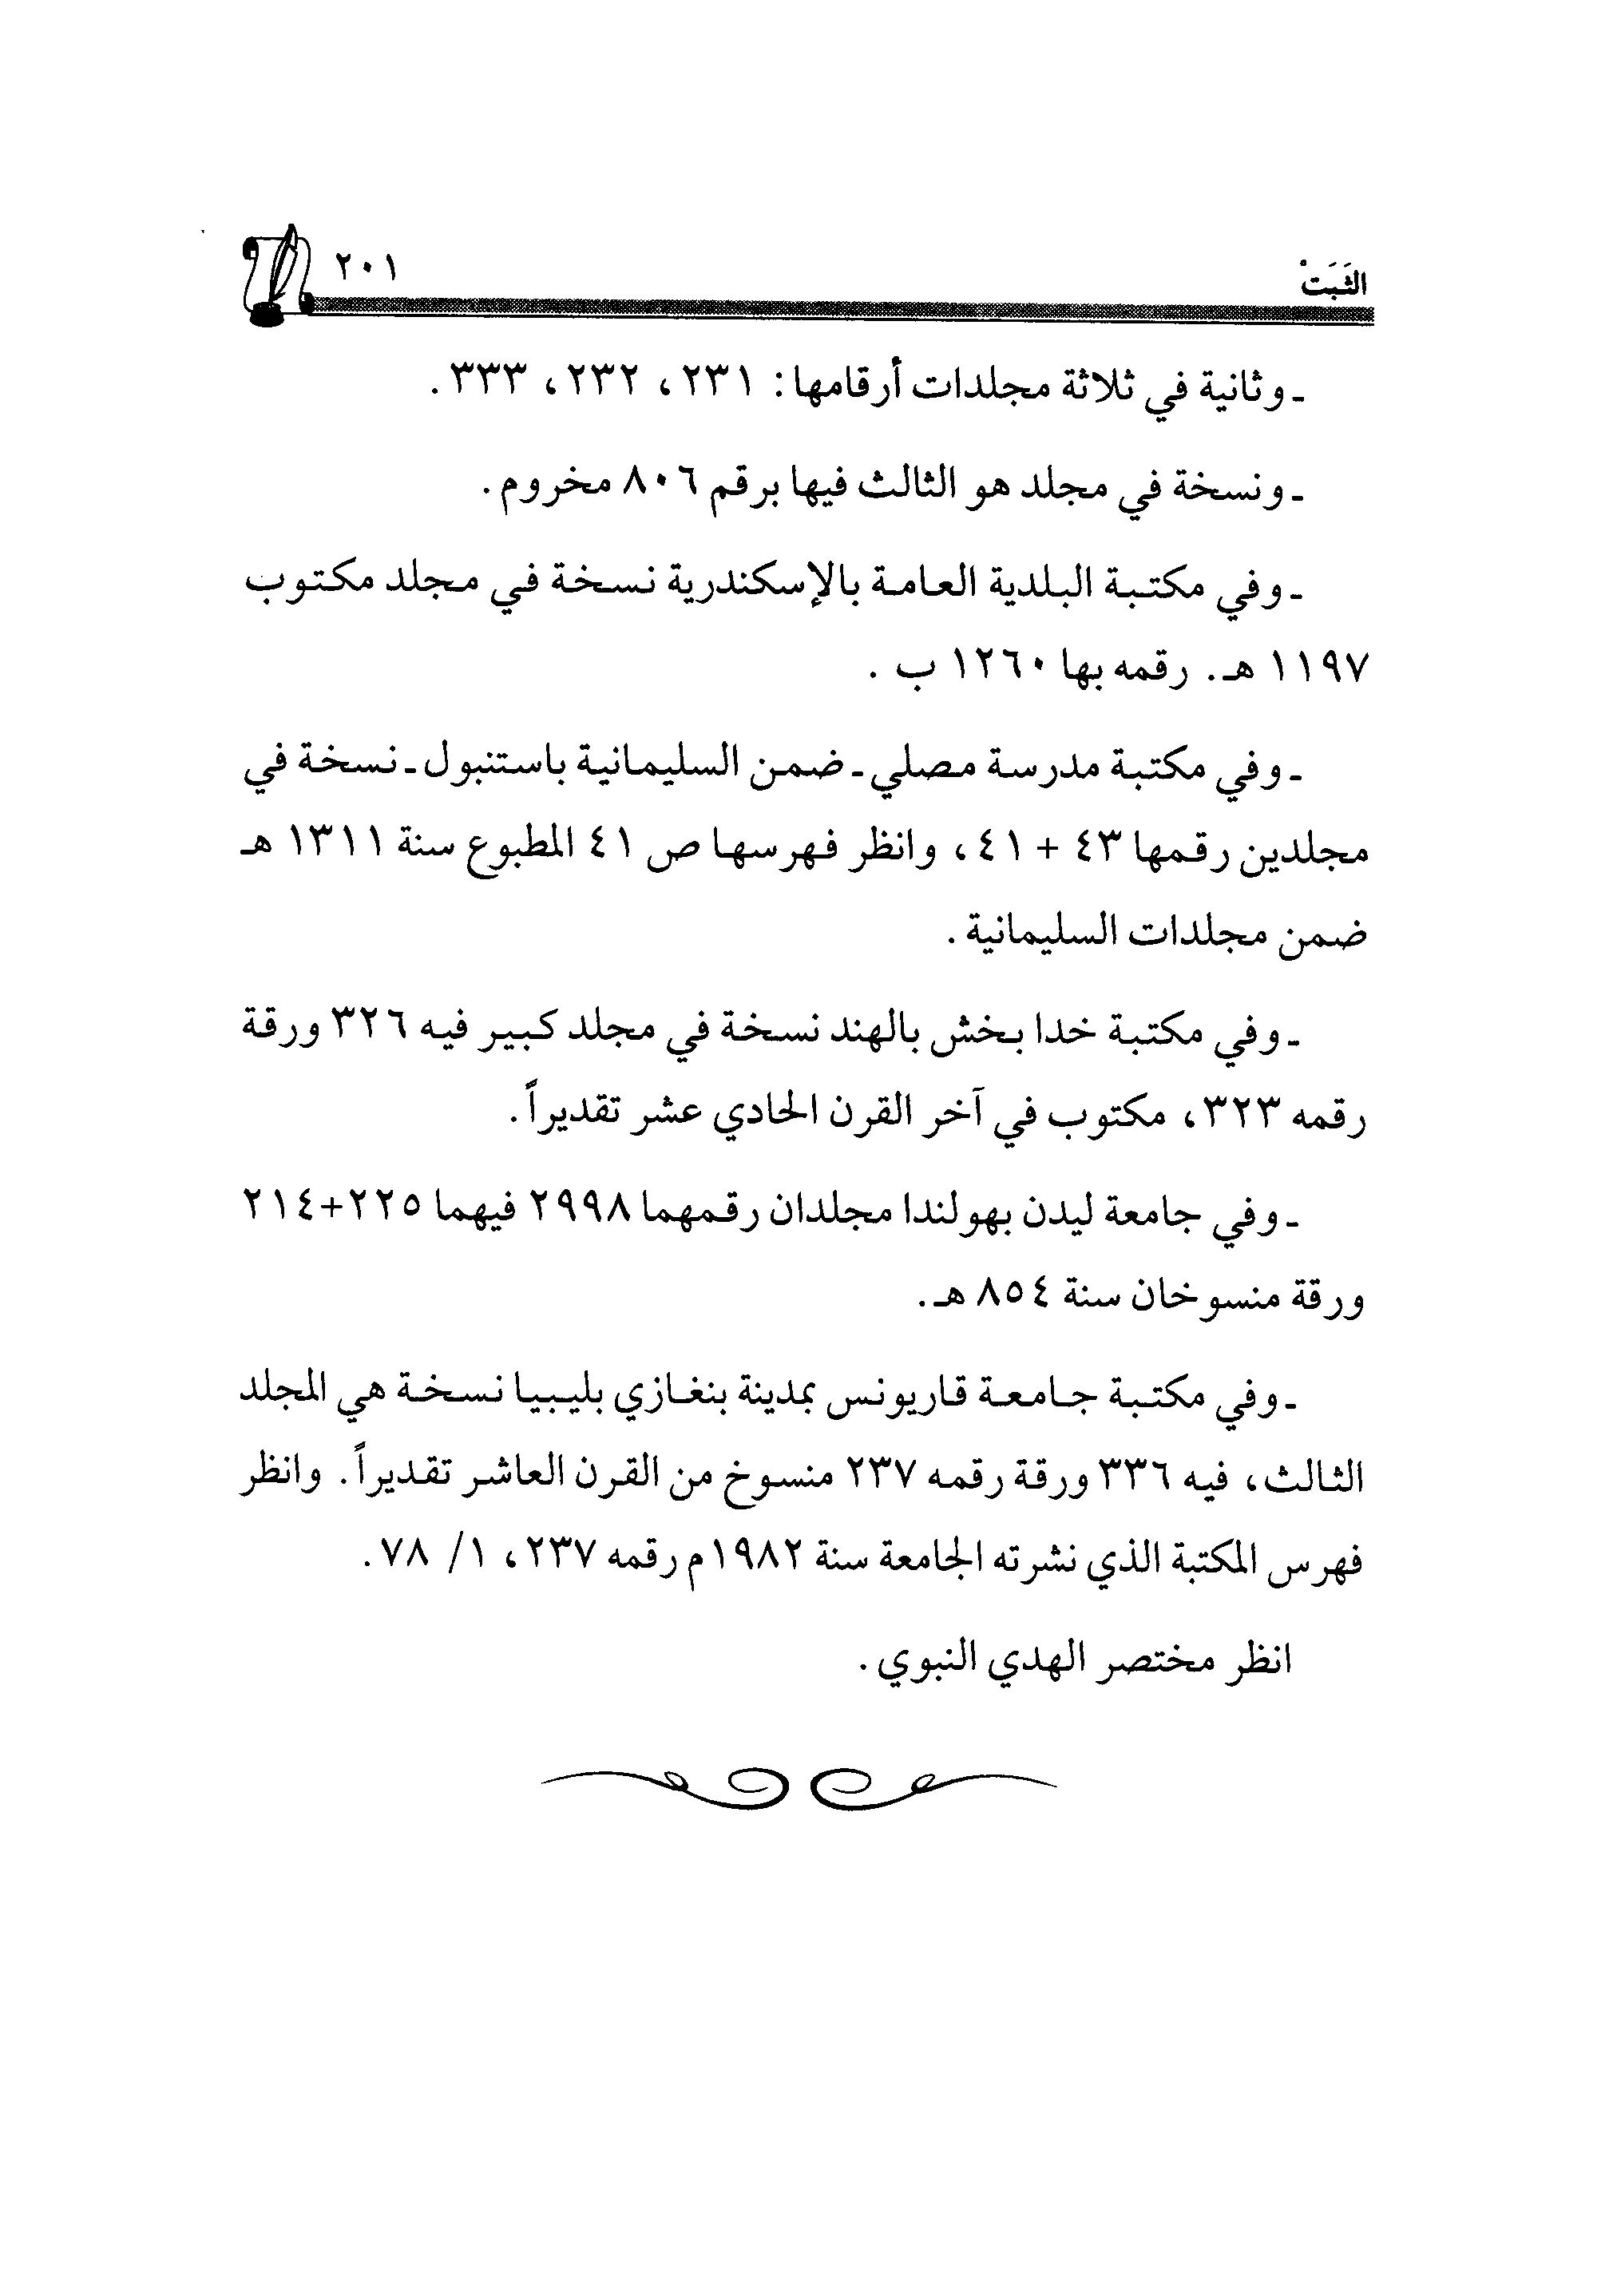 الثَبَتْ
٢٠١
ـ وثانية في ثلاثة مجلدات أرقامها: ٢٣١، ٢٣٢، ٣٣٣.
ـ ونسخة في مجلد هو الثالث فيها برقم ٨٠٦ مخروم.
ـ وفي مكتبة البلدية العامة بالإسكندرية نسخة في مجلد مكتوب
١١٩٧ هـ. رقمه بها ١٢٦٠ ب .
ـ وفي مكتبة مدرسة مصلي ـ ضمن السليمانية باستنبول ـ نسخة في
مجلدين رقمها ٤٣ + ٤١، وانظر فهرسها ص ٤١ المطبوع سنة ١٣١١ هـ
ضمن مجلدات السليمانية .
ـ وفي مكتبة خدا بخش بالهند نسخة في مجلد كبير فيه ٣٢٦ ورقة
رقمه ٣٢٣، مكتوب في آخر القرن الحادي عشر تقديراً.
ـ وفي جامعة ليدن بهولندا مجلدان رقمهما ٢٩٩٨ فيهما ٢٢٥+٢١٤
ورقة منسوخان سنة ٨٥٤ هـ.
ـ وفي مكتبة جامعة قاريونس بمدينة بنغازي بليبيا نسخة هي المجلد
الثالث، فيه ٣٣٦ ورقة رقمه ٢٣٧ منسوخ من القرن العاشر تقديراً. وانظر
فهرس المكتبة الذي نشرته الجامعة سنة ١٩٨٢م رقمه ٢٣٧، ١/ ٧٨.
انظر مختصر الهدي النبوي.